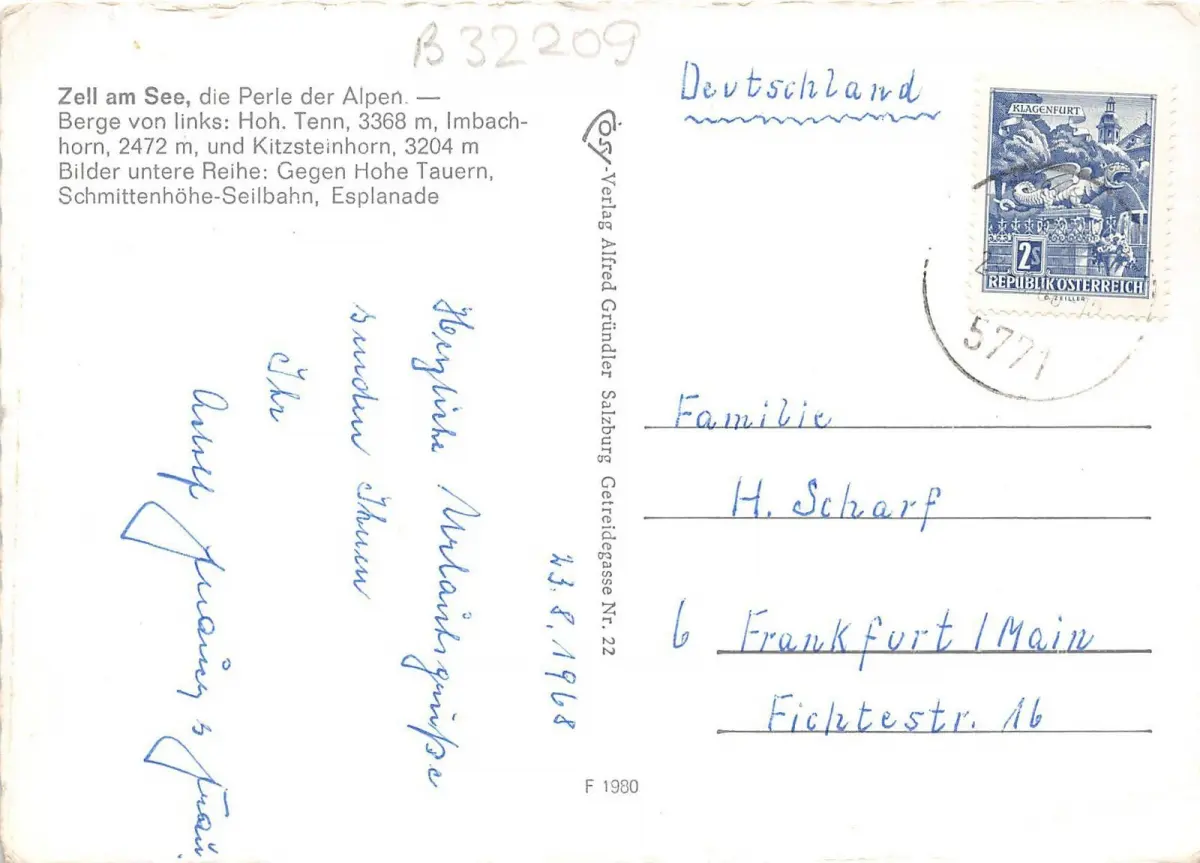 B 32209
Zell am See, die Perle der Alpen. —
Berge von links: Hoh. Tenn, 3368 m, Imbach-
horn, 2472 m, und Kitzsteinhorn, 3204 m
Bilder untere Reihe: Gegen Hohe Tauern,
Schmittenhöhe-Seilbahn, Esplanade
23.8.1968
Herzliche Urlaubsgrüße
senden Ihnen
Ihr
Frau
Cosy-Verlag Alfred Gründler Salzburg Getreidegasse Nr. 22
F 1980
Deutschland
KLAGENFURT
2S
REPUBLIK ÖSTERREICH
G. ZEILLER
5771
Familie
H. Scharf
6 Frankfurt/Main
Fichtestr. 16